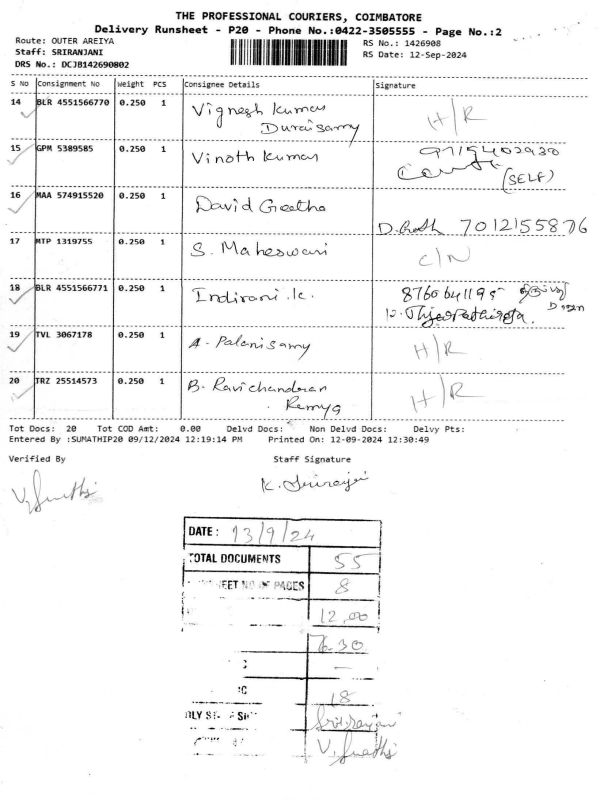 THE PROFESSIONAL COURIERS, COIMBATORE
Delivery Runsheet - P20 - Phone No.:0422-3505555 - Page No.:2
Route: OUTER AREIYA
RS No.: 1426908
Staff: SRIRANJANI
RS Date: 12-Sep-2024
DRS No.: DCJB142690802
S No Consignment No Weight PCS Consignee Details Signature
14 BLR 4551566770 0.250 1 Vignesh Kumar H/R
Duraisamy
15 GPM 5389585 0.250 1 Vinoth Kumar 9715402930
(SELF)
16 MAA 574915520 0.250 1 David Geetha
7012155876
17 MTP 1319755 0.250 1 S. Maheswari C/N
18 BLR 4551566771 0.250 1 Indirani .K. 8760641195
19 TVL 3067178 0.250 1 A. Palanisamy H/R
20 TRZ 25514573 0.250 1 B. Ravichandran H/R
Remya
Tot Docs: 20 Tot COD Amt: 0.00 Delvd Docs: Non Delvd Docs: Delvy Pts:
Entered By :SUMATHIP20 09/12/2024 12:19:14 PM Printed On: 12-09-2024 12:30:49
Verified By Staff Signature
DATE: 13/9/24
TOTAL DOCUMENTS 55
EET NO OF PAGES 8
12.00
30
—
18
Sriranjani